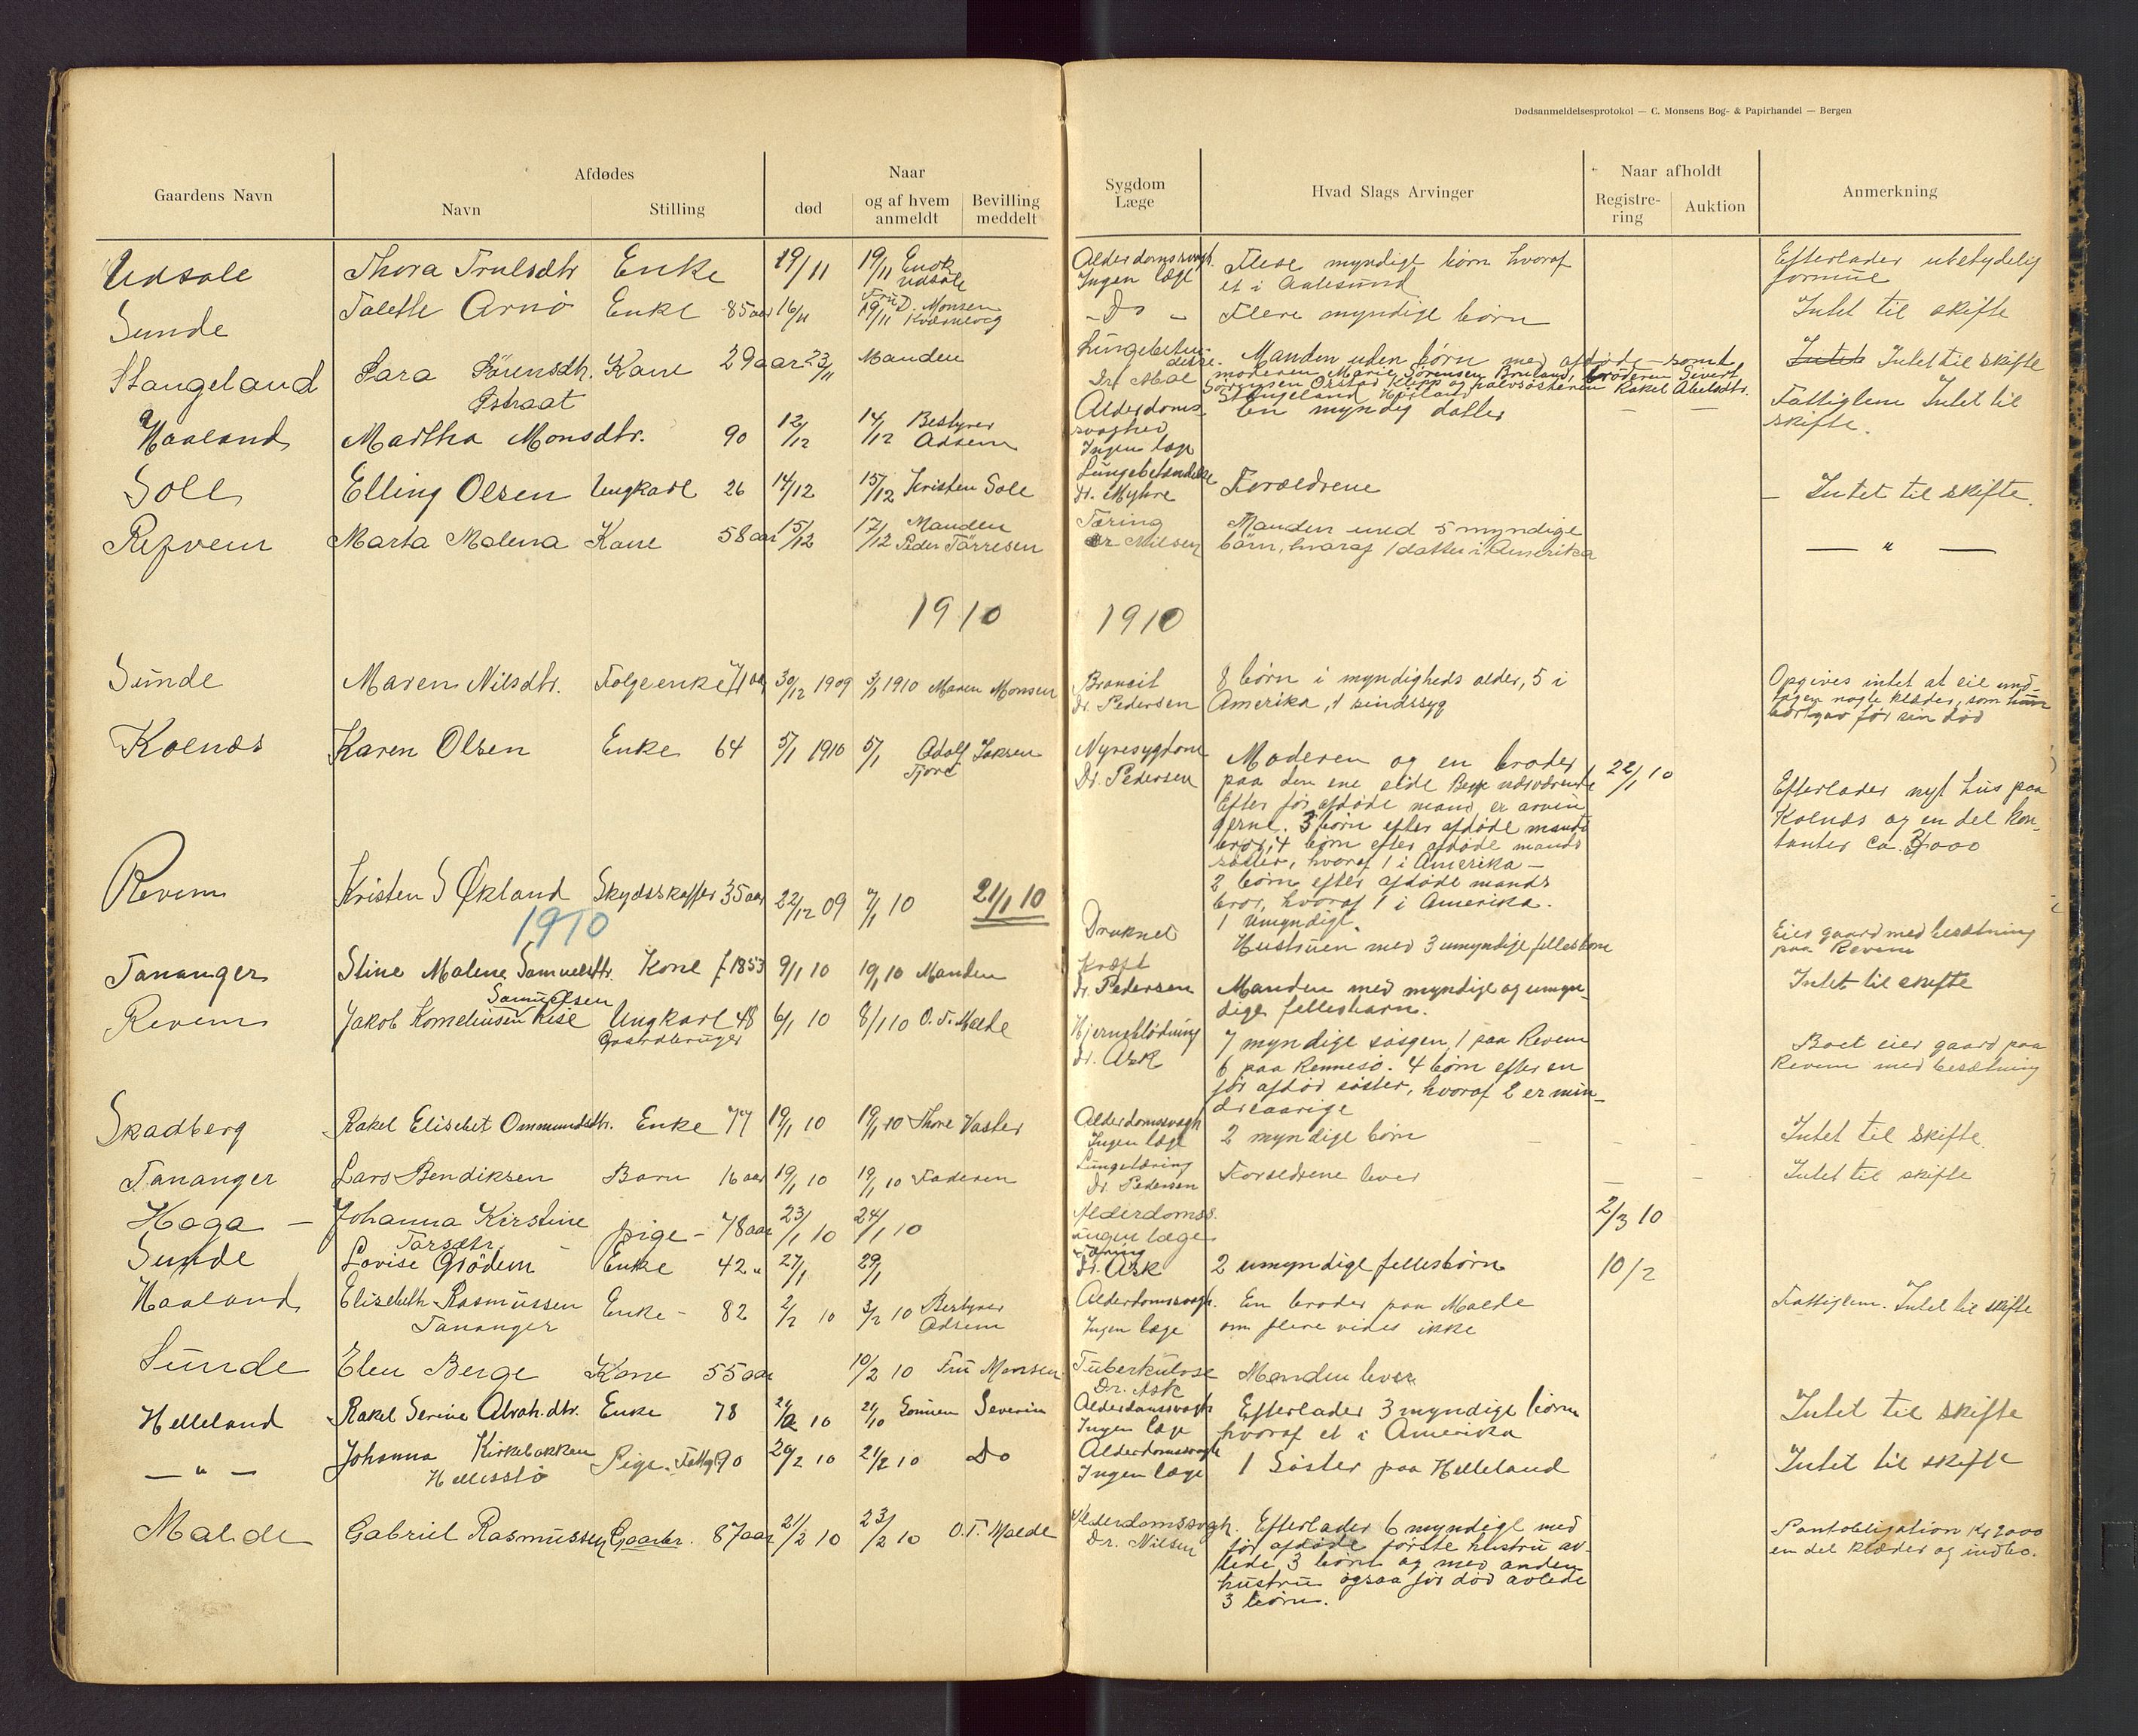 Dødsanmeldelsesprotokol — C. Monsens Bog- & Papirhandel — Bergen
Gaardens Navn
Afdødes
Navn
Stilling
Naar
død
og af hvem anmeldt
Bevilling meddelt
Sygdom Læge
Hvad Slags Arvinger
Naar afholdt
Registrering
Auktion
Anmerkning
Udsole Thora Trulsdtr Enke 19/11 19/11 Enok Udsole
Alderdomssvagh. Ingen læge Flere myndige børn hvoraf
et i Aalesund
Efterlader ubetydelig
formue
Sunde Talette Arnø Enke 85 aar 16/11 19/11 Fru D. Monsen Kvernevig
- Do - Flere myndige børn Intet til skifte
Stangeland Sara Sørensdtr. Kone 29 aar 23/11 Manden
Pstraat
Dr. Manden uden børn med afdøde – samt
moderen Marie Sørensen Bruland, broderen Sivert
Sørensen Orstad Klepp og halvsøsteren Rakel Abelsdtr.
Stangeland
Intet til skifte
Haaland Martha Monsdtr. 90 12/12 14/12 Bestyrer Adsem
Alderdoms
svaghed
Ingen læge
En myndig datter
Fattiglem Intet til
skifte.
Sole Elling Olsen Ungkarl 26 14/12 15/12 Kristen Sole
Lungebetændelse
Dr. Myhre Forældrene – Intet til skifte.
Revem Marta Malena Kone 58 aar 15/12 17/12 Manden
Peder Tørresen
Tæring
Dr Nilsen
Manden med 5 myndige
børn, hvoraf 1 datter i Amerika
— " —
1910 1910
Sunde Maren Nilsdtr. Følgeenke 71 aar 30/12 1909 3/1 1910 Maren Monsen
Broncit
Dr. Pedersen
8 børn i myndigheds alder, 5 i
Amerika, 1 sindssyg
Opgives intet at eie und-
tagen nogle klæder, som hun
bortgav før sin død
Kolnes Karen Olsen Enke 64 5/1 1910 5/1 Adolf Jaksen
Fjord
Nyresygdom
Dr. Pedersen
Moderen og en broder
paa den ene side
Efter før afdøde mand er arvin
gerne. 3 børn efter afdøde mands
bror, 4 børn efter afdøde mands
søster, hvoraf 1 i Amerika –
2 børn efter afdøde mands
bror, hvoraf 1 i Amerika.
1 umyndigt.
22/1 10
Efterlader nyt hus paa
Kolnes og en del kon-
tanter ca. 3000
Revem Kristen S Økland Skydsskaffer 35 aar 22/12 09 7/1 10 21/1 10
Druknet
Hustruen med 3 umyndige fellesbørn
Eier gaard med besætning
paa Revem
1910
Tananger Stine Malene Samuelsdtr. Kone f. 1853 9/1 10 19/1 10 Manden
Kræft
Dr. Pedersen
Manden med myndige og umyn-
dige fellesbarn.
Intet til skifte
Revem Jakob Korneliusen Rise Ungkarl 48 6/1 10 8/1 10 O. T. Malde
Samuelsen
Gaardbruger
Hjerneblødning
Dr. Ask
7 myndige søsgen, 1 paa Revem
6 paa Rennesø. 4 børn efter en
før afdød søster, hvoraf 2 er min-
dreaarige
Boet eier gaard paa
Revem med besætning
Skadberg Rakel Elisebet Ommundsdtr. Enke 77 19/1 10 19/1 10 Thore Vaster
Alderdomssvagh
Ingen læge
2 myndige børn
Intet til skifte.
Tananger Lars Bendiksen Barn 16 aar 19/1 10 19/1 10 Faderen
Lungetæring
Dr. Pedersen
Forældrene lever
Intet til skifte
Haga – Johanna Kirstine pige – 78 aar 23/1 10 24/1 10
Tarsdtr.
Alderdomss.
ingen læge
2/3 10
Sunde Lovise Grødem Enke 42 " 27/1 29/1
Tæring
Dr. Ask
2 umyndige fellesbørn
10/2
Haaland Elisebeth Rasmussen Enke – 82 2/2 10 3/2 10 Bestyrer
Tananger Adsem
Alderdomssvagh.
Ingen læge
En broder paa Malde
om flere vides ikke
Fattiglem. Intet til skifte
Sunde Elen Berge Kone 55 aar 10/2 10 Fru Monsen
Tuberkulose
Dr. Ask
Manden lever
Helleland Rakel Serine Abrah.dtr. Enke 78 21/2 10 21/10 Sønnen Severin
Alderdomssvagh
Ingen læge
Efterlader 3 myndige børn
hvoraf et i Amerika
Intet til skifte
— " — Johanna Kirkebakken Pige. Fattigl 90 20/2 10 21/2 10 Do
Hellestø
Alderdomssvagh
Ingen læge
1 Søster paa Helleland
Intet til skifte
Malde Gabriel Rasmussen Gaarbr. 87 aar 21/2 10 23/2 10 O. T. Malde
Alderdomssvagh.
Dr. Nilsen
Efterlader 6 myndige med
før afdøde første hustru av-
lede 3 børn og med anden
hustru ogsaa før død avlede
3 børn.
Pantobligation Kr 2000
en del klæder og indbo.